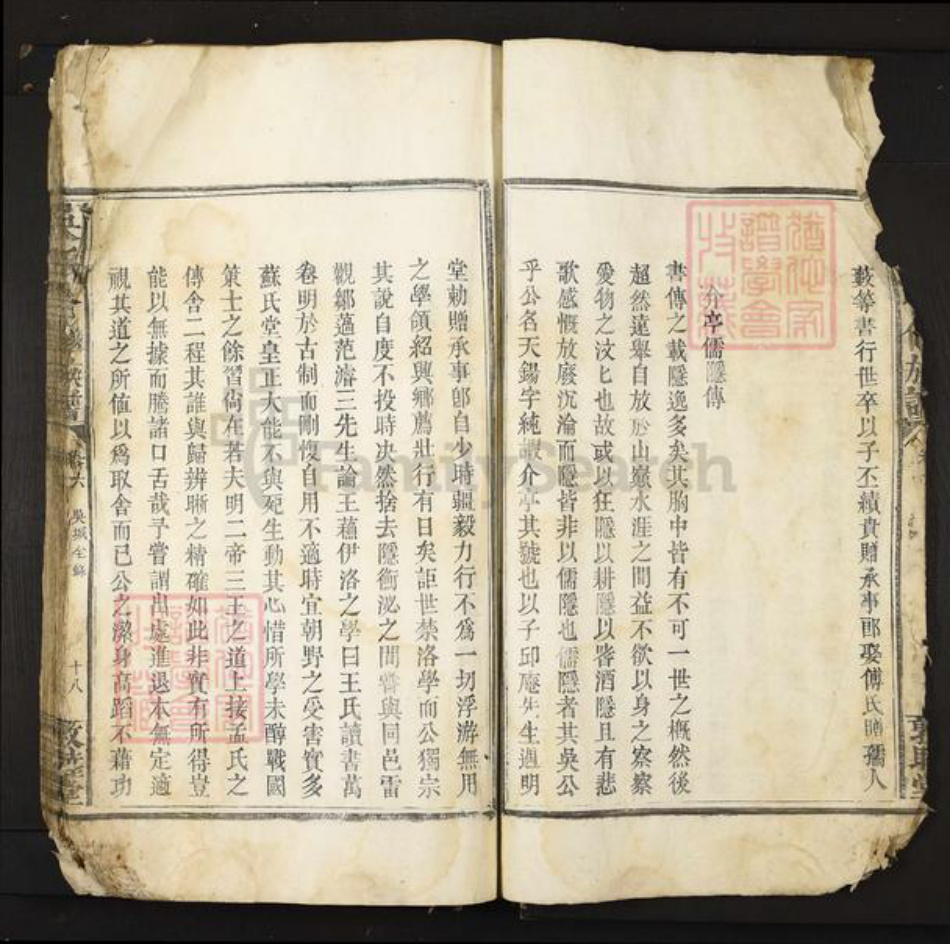 數等書行世卒以子丕績貴贈承事郎娶傅氏贈孺人
介亭儒隱傳
書傳之載隱逸多矣其胸中皆有不可一世之概然後
超然遠舉自放於山嶽水涯之間益不欲以身之察察
愛物之汶匕也故或以狂隱以耕隱以酒隱且有悲
歌感慨放廢沉淪而隱皆非以儒隱也儒隱者其吳公
乎公名天錫字純嘏介亭其號也以子邱庵先生遇明
堂勅贈承事郎自少時疆毅力行不為一切浮游無用
之學領紹興鄉薦壯行有日矣詎世禁洛學而公獨宗
其說自度不投時決然捨去隱衡泌之間嘗與同邑雷
觀鄒薖范濬三先生論王蘓伊洛之學曰王氏讀書萬
卷明於古制而剛愎自用不適時宜朝野之受害實多
蘇氏堂皇正大能不與死生動其心惜所學未醇戰國
策士之餘習尚在若夫明二帝三王之道上接孟氏之
傳舍二程其誰與歸辨晰之精確如此非實有所得豈
能以無據而騰諸口舌哉予嘗謂出處進退本無定適
視其道之所值以爲取舍而已公之潔身高蹈不藉功
卷六
吳城全錄
十八
敦睦堂
FamilySearch